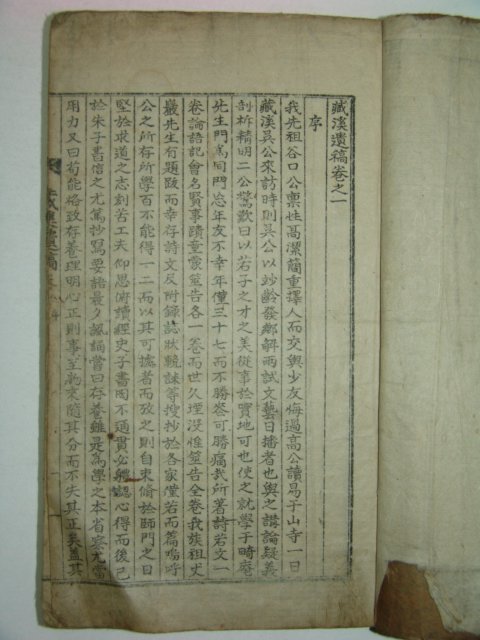 藏溪遺稿卷之一
序
我先祖谷口公稟性高潔簡重擇人而交與少友悔過高公讀易于山寺一日
藏溪吳公來訪時則吳公以妙齡發鄕解兩試文藝日播者也與之講論疑義
剖析精明二公驚歎曰以若子之才之美從事於實地可也使之就學于畸庵
先生門爲同門忘年友不幸年僅三十七而不勝喪可勝痛哉所著若文一
卷論語記會名賢事蹟童蒙筮告各一卷而世久埋沒惟筮告全卷我族祖丈
巖先生有題跋而幸存詩文及附錄誌狀輓誄等搜抄於各家僅若而篇嗚呼
公之所存所學百不能得一二而以其可據者而攷之則自束脩於師門之日
堅於求道之志刻苦工夫仰思俯讀經史子書罔不通貫必體認心得而後已
於朱子書信之尤篤抄寫要語最久諷誦嘗曰存養雖是爲學之本省察尤當
用力又曰苟能格致存養理明心正則事至物來隨其分而不失其正矣盖其